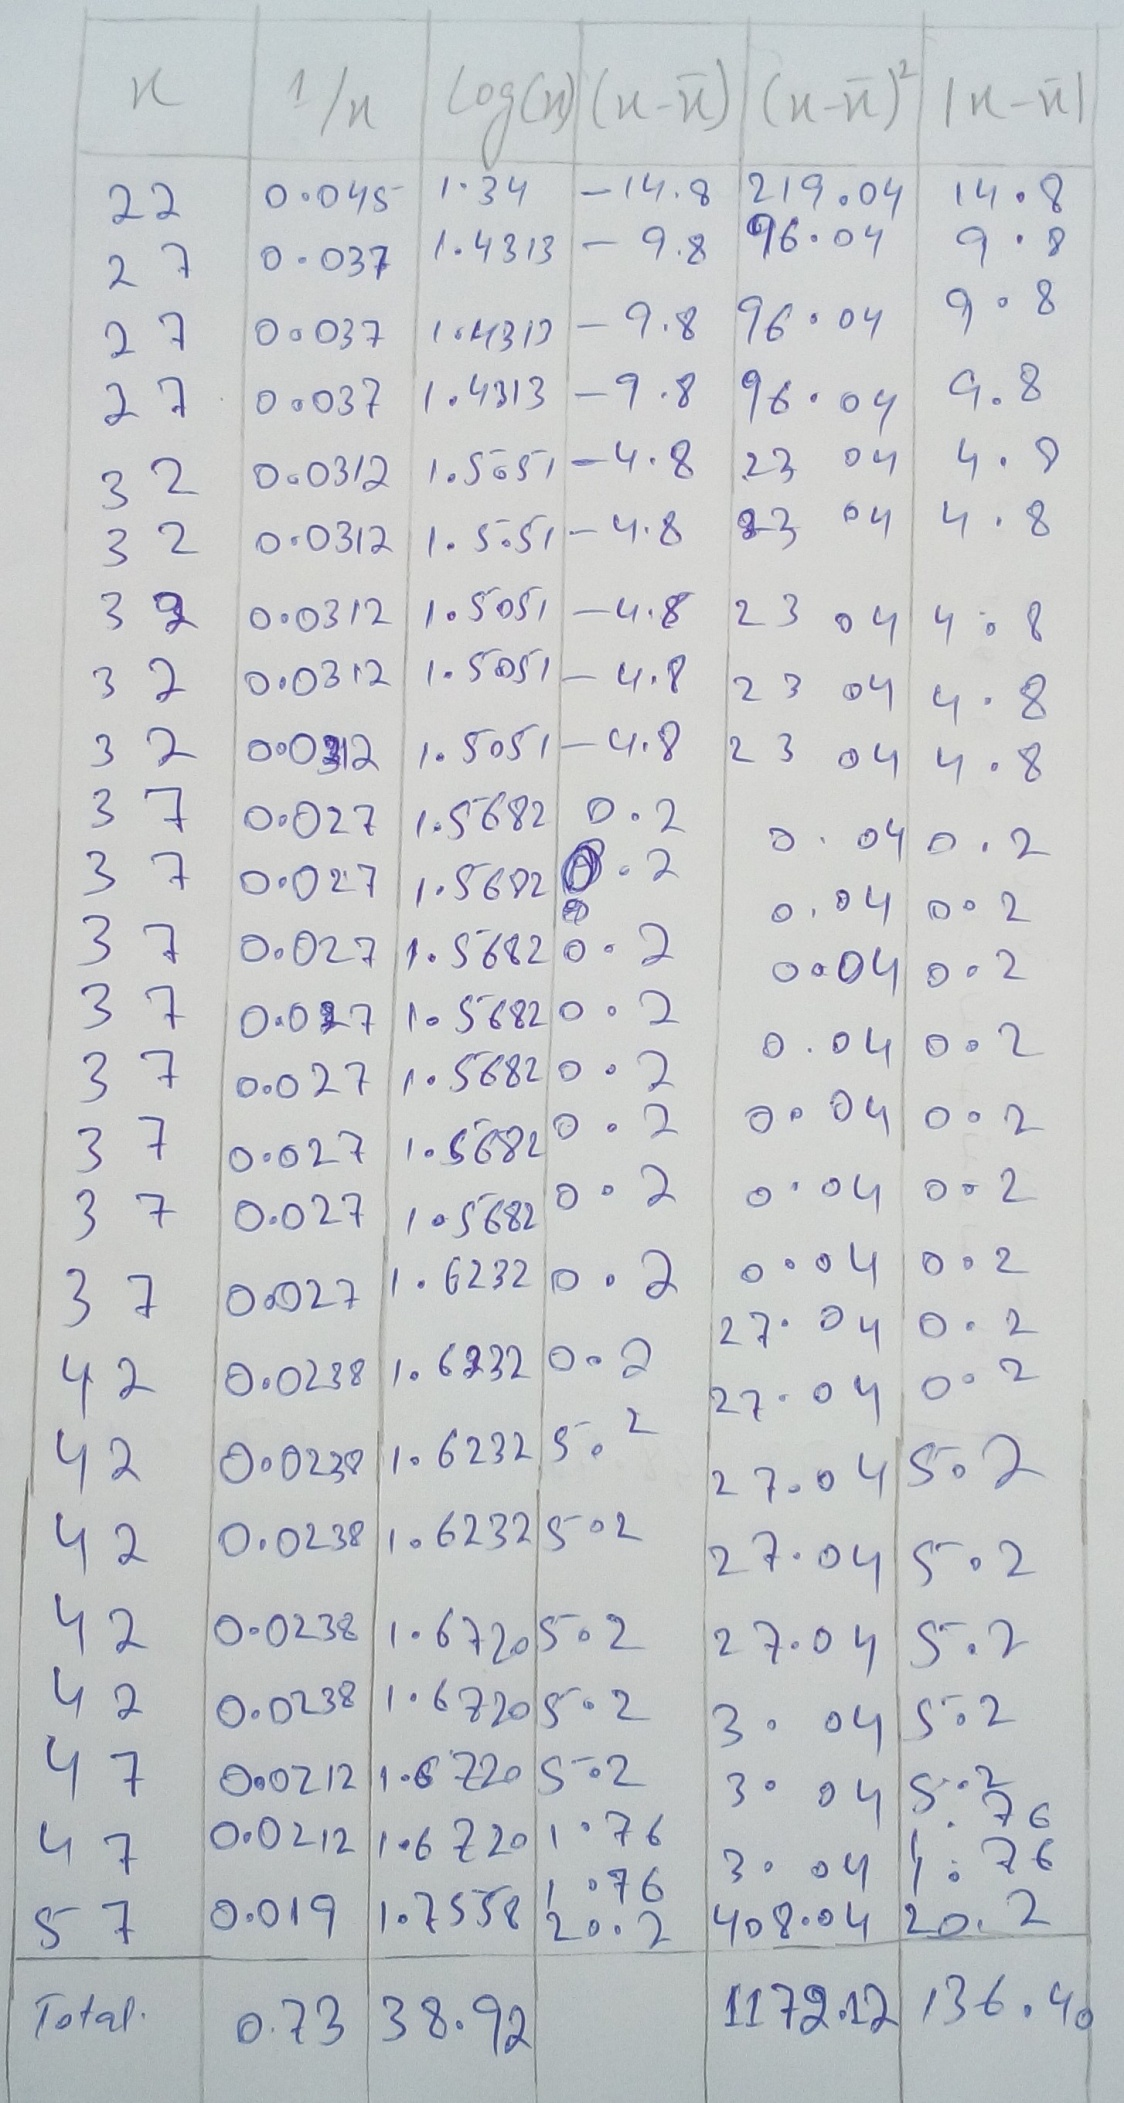 x 1/x log(x) (x-x̄) (x-x̄)² |x-x̄|
22 0.045 1.34 -14.8 219.04 14.8
27 0.037 1.4313 -9.8 96.04 9.8
27 0.037 1.4313 -9.8 96.04 9.8
27 0.037 1.4313 -9.8 96.04 9.8
32 0.0312 1.5051 -4.8 23 04 4.8
32 0.0312 1.5.51 -4.8 23 04 4.8
32 0.0312 1.5051 -4.8 23 04 4.8
32 0.0312 1.5051 -4.8 23 04 4.8
32 0.0312 1.5051 -4.8 23 04 4.8
37 0.027 1.5682 0.2 0.04 0.2
37 0.027 1.5682 0.2 0.04 0.2
37 0.027 1.5682 0.2 0.04 0.2
37 0.027 1.5682 0.2 0.04 0.2
37 0.027 1.5682 0.2 0.04 0.2
37 0.027 1.5682 0.2 0.04 0.2
37 0.027 1.5682 0.2 0.04 0.2
37 0.027 1.6232 0.2 27.04 0.2
42 0.0238 1.6232 0.2 27.04 0.2
42 0.0238 1.6232 5.2 27.04 5.2
42 0.0238 1.6232 5.2 27.04 5.2
42 0.0238 1.6720 5.2 27.04 5.2
42 0.0238 1.6720 5.2 3.04 5.2
47 0.0212 1.6720 5.2 3.04 5.2
47 0.0212 1.6720 1.76 3.04 1.76
1.76 1.76
57 0.019 1.7558 20.2 408.04 20.2
Total. 0.73 38.92 1172.12 136.40